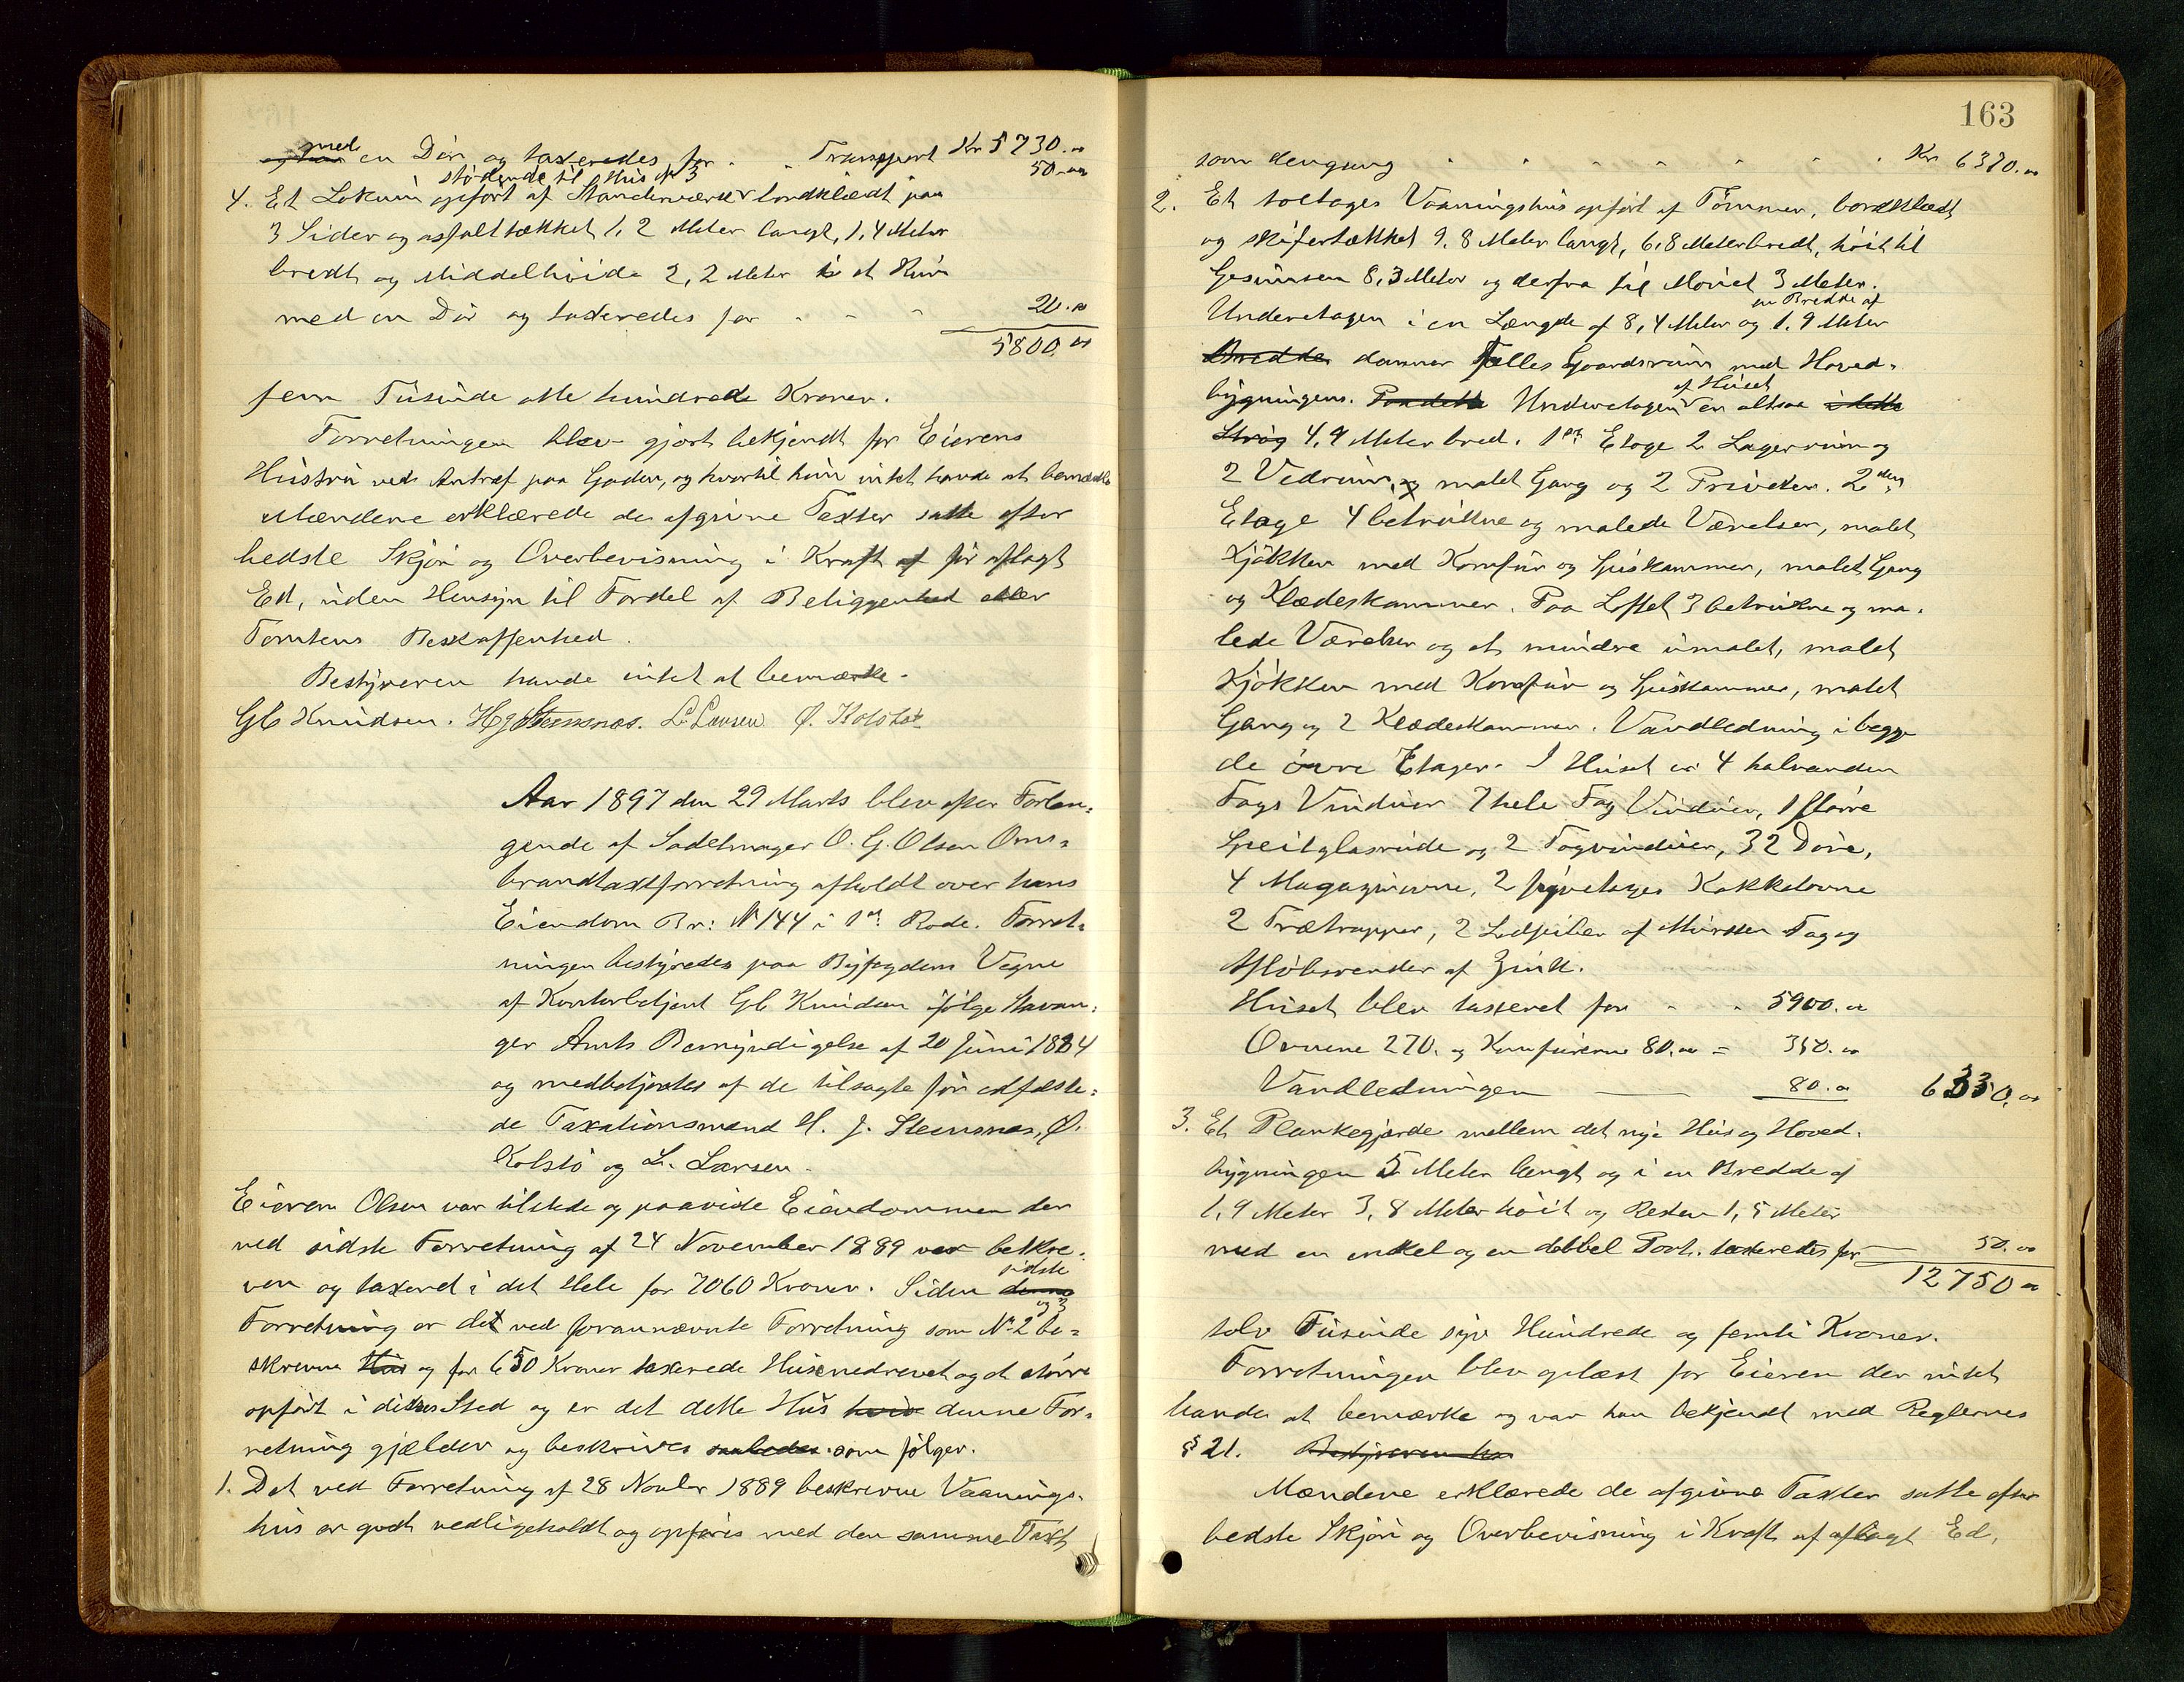 med en Dör og taxeredes for . . Transport Kr 5730.00
50.00
stödende til Hus No 3
4. Et Lokum opfört af Standerværk bordklædt paa
3 Sider og asfalttækket 1,2 Meter langt, 1,4 Meter
bredt og Middelhöide 2,2 Meter et Rum
med en Dör og taxeredes for - - - 20.00
5800.00
fem Tusinde otte hundrede Kroner.
Forretningen blev gjort bekjendt for Eierens
Hustru ved Antræf paa Gaden, og hvortil hun intet havde at bemærke
Mændene erklærede de afgivne Taxter satte efter
bedste Skjön og Overbevisning i Kraft af för aflagt
Ed, uden Hensyn til Fordel af Beliggenhed eller
Tomtens Beskaffenhed.
Bestyreren havde intet at bemærke.
Gb Knudsen. H J Stensnæs. L. Larsen. Ø. Kolstö
Aar 1897 den 29 Marts blev efter Forlan=
gende af Sadelmager O. G. Olsen Om=
brandtaxtforretning afholdt over hans
Eiendom Br: No 144 i 1ste Rode. Forret=
ningen bestyredes paa Byfogdens Vegne
af Kontorbetjent Gb Knudsen ifölge Stavan=
ger Amts Bemyndigelse af 20 Juni 1884
og medbetjentes af de tilsagte för edfæste=
de Taxationsmænd H. J. Stensnæs, Ø.
Kolstö og L. Larsen.
Eieren Olsen var tilstede og paaviste Eiendommen der
ved sidste Forretning af 24 November 1889 var beskre=
ven og taxeret i det Hele for 7060 Kroner. Siden sidste
Forretning er det ved forannævnte Forretning som No 2 og 3 be=
skrevne og for 650 Kroner taxerede Huse nedrevet og et större
opfört i dettes Sted og er det dette Hus denne For=
retning gjælder og beskrives som fölger.
1. Det ved Forretning af 28 Novbr 1889 beskrevne Vaanings=
hus er godt vedligeholdt og opföres med den samme Taxt
163
som dengang . . . . . . . Kr 6370.00
2. Et toetages Vaaningshus opfört af Tömmer, bordklædt
og skifertækket 9,8 Meter langt, 6,8 Meter bredt, höit til
Gesimsen 8,3 Meter og derfra til Mönet 3 Meter.
Underetagen i en Længde af 8,4 Meter og en Bredde af 1,9 Meter
Bredde danner fælles Gaardsrum med Hoved=
bygningen. Underetagen af Huset er altsaa
4,9 Meter bred. 1ste Etage 2 Lagerrum og
2 Vedrum, malet Gang og 2 Priveter. 2den
Etage 4 betrukne og malede Værelser, malet
Kjökken med Komfur og Spiskammer, malet Gang
og Klædeskammer. Paa Loftet 3 betrukne og ma=
lede Værelser og et mindre umalet, malet
Kjökken med Komfur og Spiskammer, malet
Gang og 2 Klædeskammer. Vandledning i begge
de övre Etager. I Huset er 4 halvanden
Fags Vinduer 7 hele Fag Vinduer, 1 större
Speilglasrude og 2 Tagvinduer, 32 Döre,
4 Magasinovne, 2 Kakkelovne
2 Trætrapper, 2 Ledpiber af Mursten Tag og
Aflöbsrender af Zink.
Huset blev taxeret for - - 5900.00
Ovnene 270. og Komfurerne 80.00 = 350.00
Vandledningen — 80.00 6330.00
3. Et Plankegjærde mellem det nye Hus og Hoved=
bygningen 5 Meter langt og i en Bredde af
1,9 Meter 3,8 Meter höit og Resten 1,5 Meter
med en enkel og en dobbel Port. taxeredes for — 50.00
12750.00
tolv Tusinde syv Hundrede og femti Kroner.
Forretningen blev oplæst for Eieren der intet
havde at bemærke og var han bekjendt med Reglernes
§ 21. Bestyreren ha
Mændene erklærede de afgivne Taxter satte efter
bedste Skjön og Overbevisning i Kraft af aflagt Ed,